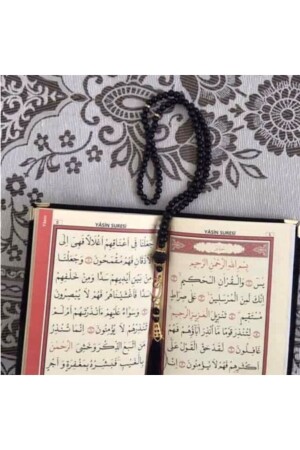 YÂSİN SURESİ
بِسْمِ اللّٰهِ الرَّحْمٰنِ الرَّحِيمِ
يٰسٓ وَالْقُرْاٰنِ الْحَكِيمِ
اِنَّكَ لَمِنَ الْمُرْسَلِينَ عَلٰى صِرَاطٍ
مُسْتَقِيمٍ تَنْزِيلَ الْعَزِيزِ الرَّحِيمِ
لِتُنْذِرَ قَوْمًا مَا اُنْذِرَ اٰبَاؤُهُمْ فَهُمْ
غَافِلُونَ لَقَدْ حَقَّ الْقَوْلُ عَلٰى
اَكْثَرِهِمْ فَهُمْ لَا يُؤْمِنُونَ اِنَّا
YÂSİN SURESİ
جَعَلْنَا فِى اَعْنَاقِهِمْ اَغْلَالًا فَهِىَ اِلَى
الْاَذْقَانِ فَهُمْ مُقْمَحُونَ وَجَعَلْنَا
مِنْ بَيْنِ اَيْدِيهِمْ سَدًّا وَمِنْ خَلْفِهِمْ
سَدًّا فَاَغْشَيْنَاهُمْ فَهُمْ لَا يُبْصِرُونَ
وَسَوَاءٌ عَلَيْهِمْ ءَاَنْذَرْتَهُمْ اَمْ لَمْ
تُنْذِرْهُمْ لَا يُؤْمِنُونَ اِنَّمَا تُنْذِرُ
مَنِ اتَّبَعَ الذِّكْرَ وَخَشِىَ الرَّحْمٰنَ
بِالْغَيْبِ فَبَشِّرْهُ بِمَغْفِرَةٍ وَاَجْرٍ